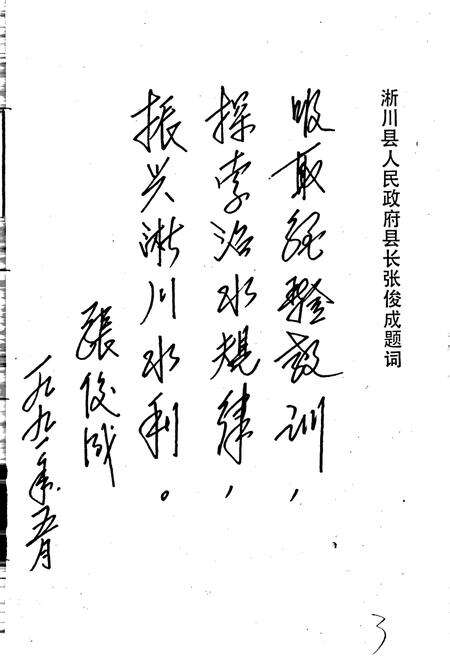 淅川县人民政府县长张俊成题词
吸取经验教训，
探索治水规律，
振兴淅川水利。
張俊成
一九九一年五月
3